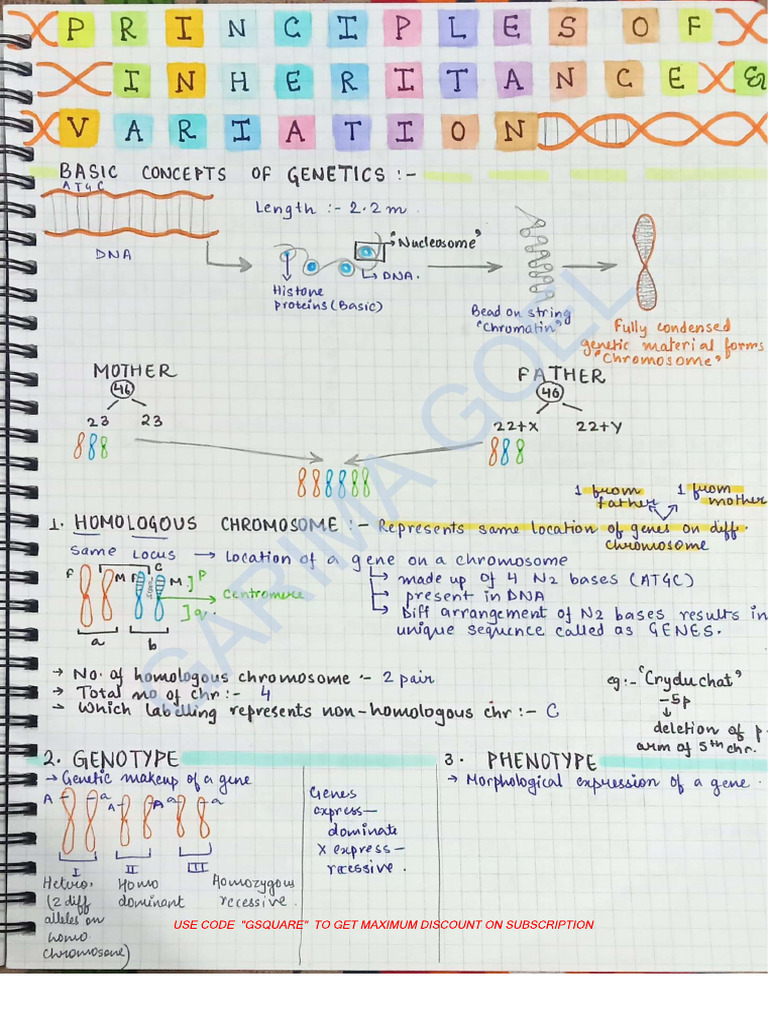 PRINCIPLES OF
INHERITANCE &
VARIATION
BASIC CONCEPTS OF GENETICS :-
ATGC
Length :- 2.2 m
DNA
"Nucleosome"
DNA.
Histone
proteins (Basic)
Bead on string
"Chromatin"
Fully condensed
genetic material forms
"Chromosome"
MOTHER
46
23 23
FATHER
46
22+X 22+Y
1 from
father
1 from
mother
1. HOMOLOGOUS CHROMOSOME :- Represents same location of genes on diff.
chromosome
Same Locus → Location of a gene on a chromosome
made up of 4 N2 bases (ATGC)
present in DNA
Diff arrangement of N2 bases results in
unique sequence called as GENES.
F M F C M ] P
Centromere
] q.
a b
→ No. of homologous chromosome :- 2 pair
→ Total no of chr :- 4
→ Which labelling represents non-homologous chr :- C
eg :- "Cryduchat"
-5p
↓
deletion of p
arm of 5th chr.
2. GENOTYPE
→ Genetic makeup of a gene
A a A A a a
I II III
Hetero.
(2 diff
alleles on
homo
chromosome)
Homo
dominant
Homozygous
recessive.
Genes
express—
dominate
X express—
recessive.
3. PHENOTYPE
→ Morphological expression of a gene.
GARIMA GOEL
USE CODE "GSQUARE" TO GET MAXIMUM DISCOUNT ON SUBSCRIPTION